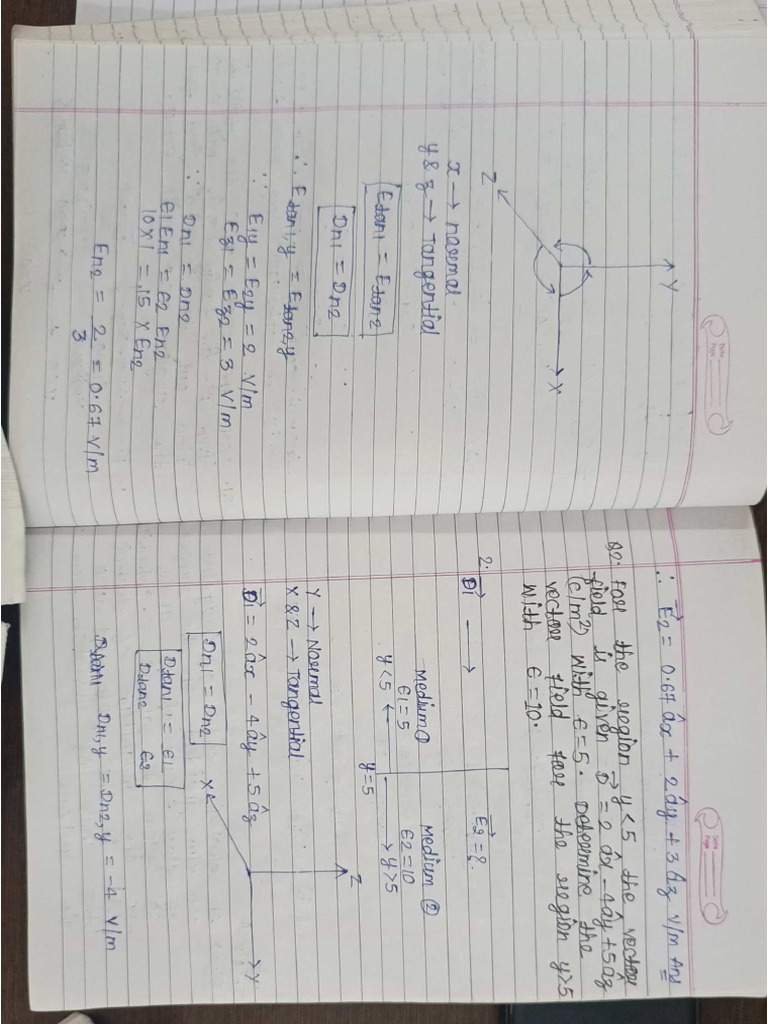 Date
Page
Y
X
Z
x → normal
y & z → Tangential
Etan1 = Etan2
Dn1 = Dn2
∴ Etan1,y = Etan2,y
∵ E1y = E2y = 2 V/m
Ez1 = Ez2 = 3 V/m
∵ Dn1 = Dn2
E1 En1 = E2 En2
10 x 1 = 15 x En2
En2 = 2/3 = 0.67 V/m
Date
Page
∴ E2 = 0.67 âx + 2ây + 3âz V/m Ans
Q2. For the region y<5 the vector
field is given D = 2 âx - 4ây + 5âz
(c/m2) with ε = 5. Determine the
vector field for the region y>5
with ε = 10.
2. D1 → E2 = ?
medium ① medium ②
ε1 = 5 ε2 = 10
y<5 y>5
y = 5
Y → Normal
X & Z → Tangential
Z
Y
X
D1 = 2âx - 4ây + 5âz
Dn1 = Dn2
Dtan1 = ε1
Dtan2 ε2
Dn1,y = Dn2,y = -4 V/m